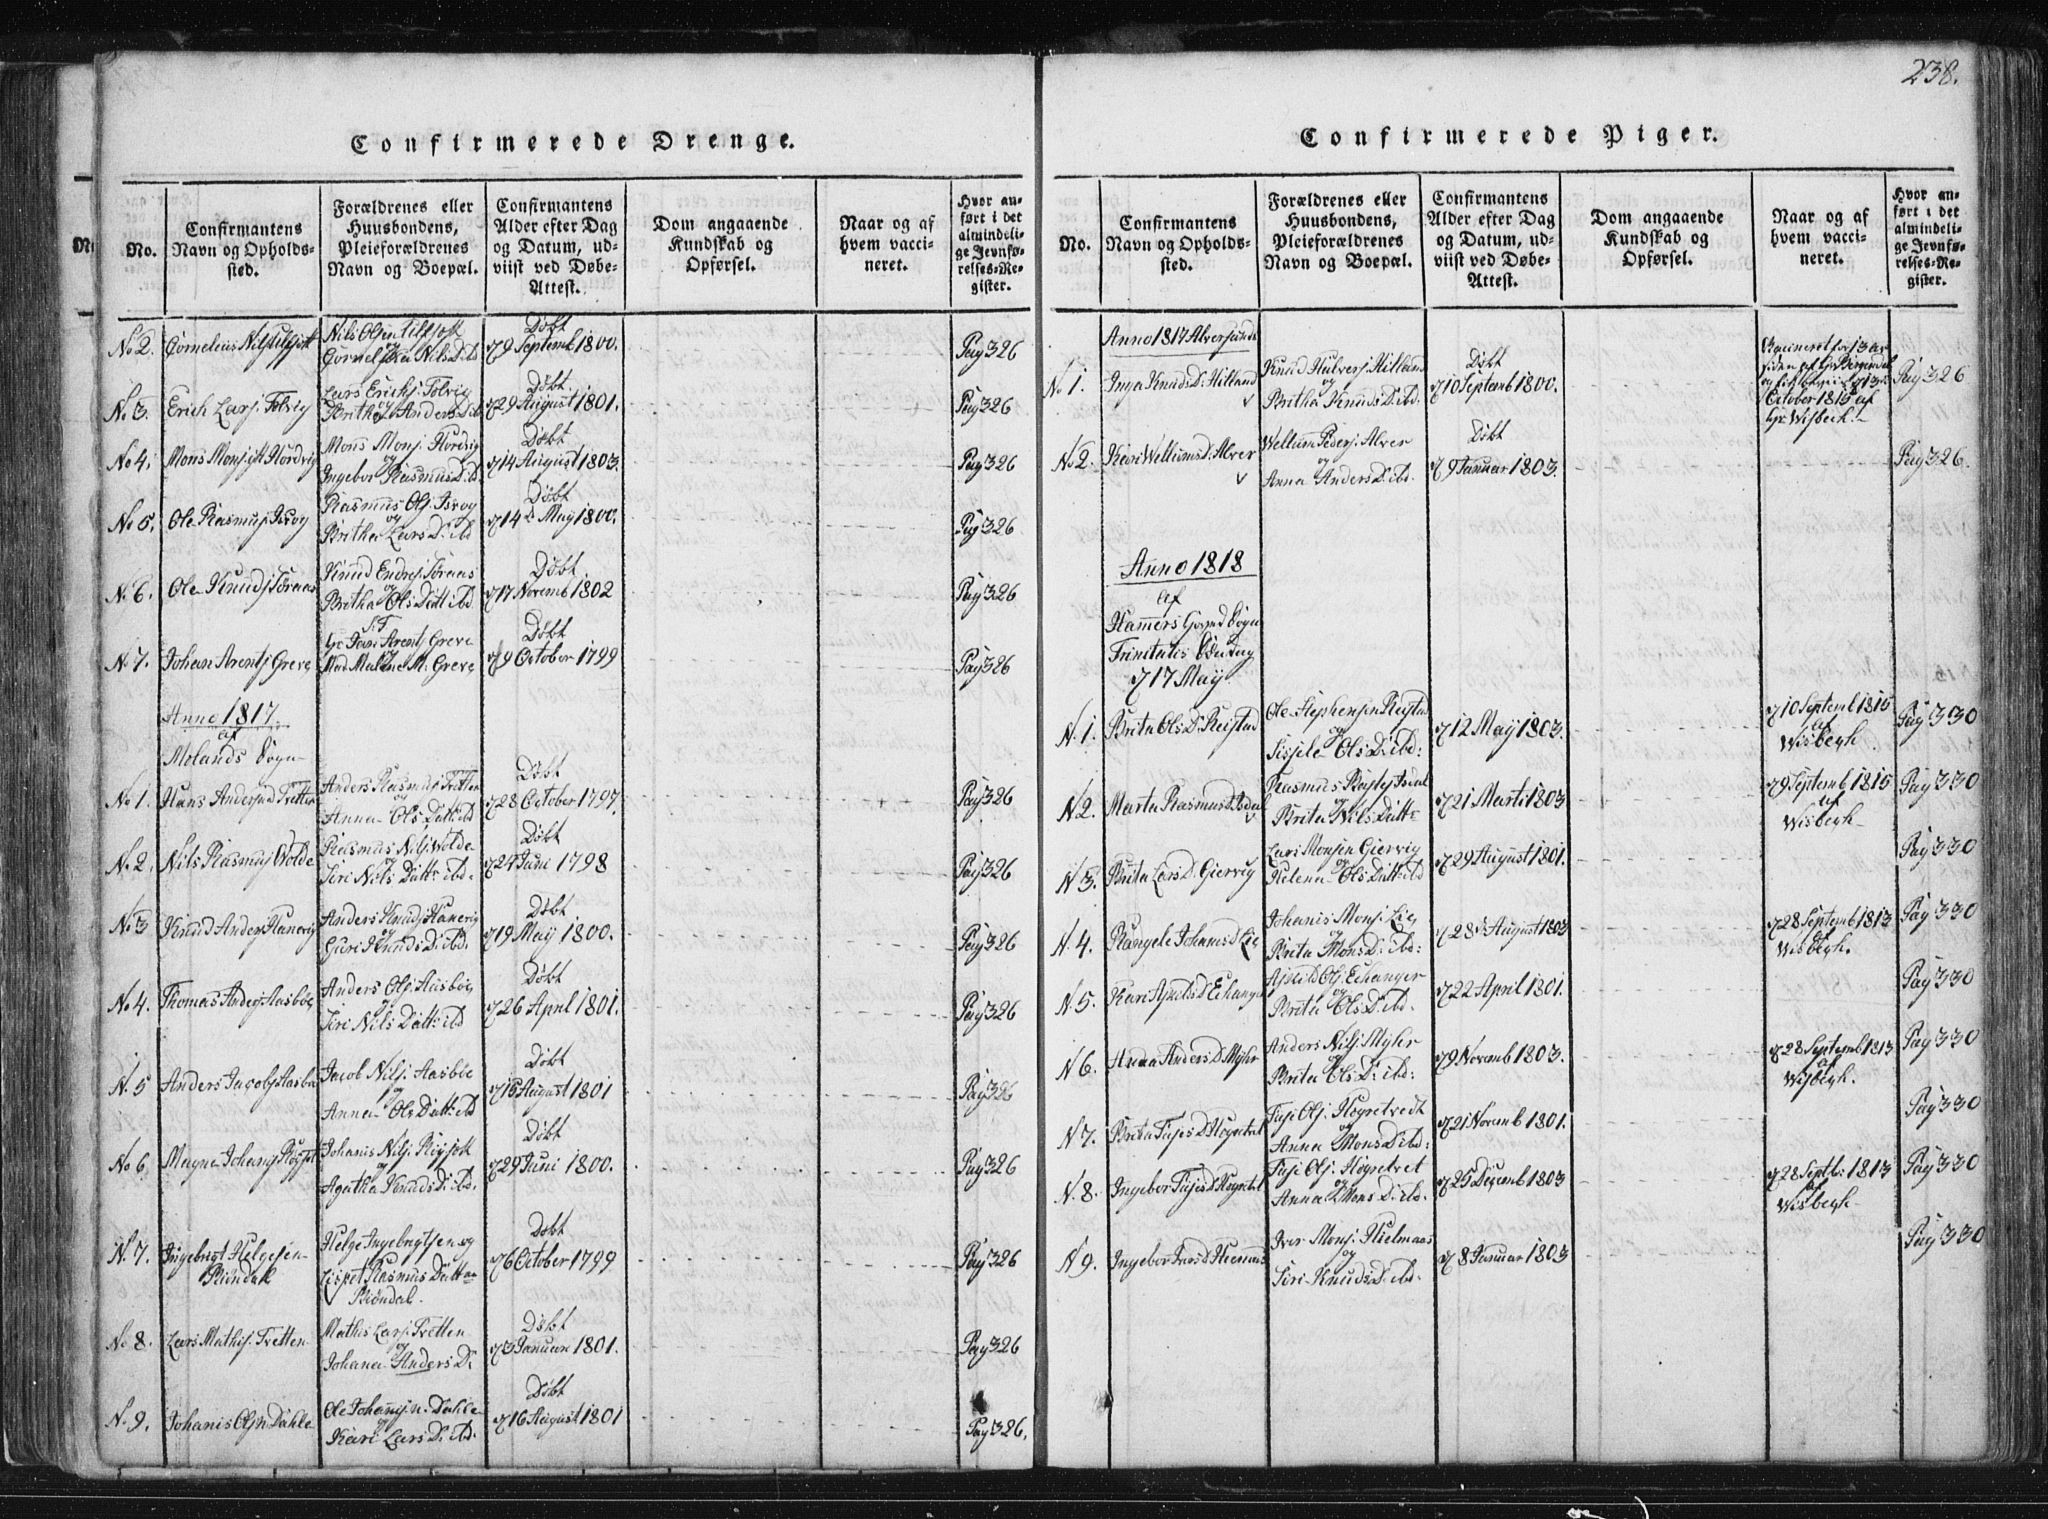 238.
Confirmerede Drenge.
No.
Confirmantens
Navn og Opholds-
sted.
Forældrenes eller
Huusbondens,
Pleieforældrenes
Navn og Boepæl.
Confirmantens
Alder efter Dag
og Datum, ud-
viist ved Døbe-
Attest.
Dom angaaende
Kundskab og
Opførsel.
Naar og af
hvem vacci-
neret.
Hvor an-
ført i det
almindeli-
ge Jevnfø-
relses-Re-
gister.
No 2.
Nils Olsen
og
Døbt
d 9 Septemb 1800.
Pag 326
No. 3.
Erich Larss. Tolvig
Lars Erichs. Tolvig
Britha Anders D. ibd
Døbt
d 29 August 1801.
Pag 326
No 4.
Mons Monss. Hordvig
Mons Monss. Hordvig
og
Ingebor Rasmus D. ibd.
Døbt
d 14 August 1803.
Pag 326
No 5.
Ole Rasmuss.
Rasmus Ols.
og
Britha Lars D. ibd
Døbt
d 14 May 1800.
Pag 326
No 6.
Ole Knuds.
Knud Endres.
og
Britha Ols Datt ibd
Døbt
d 17 Novemb 1802
Pag 326
No 7.
Johan Arents. Greve
S. T.
Hr Jans Arents. Greve
Mad. Malene M. Greve
Døbt
d 9 October 1799
Pag 326
Anno 1817.
af
Mølands Sogn
No 1.
Hans Anders. Tretten
Anders Rasmuss. Tretten
og
Anna Ols Datt ibd
Døbt
d 28 October 1797.
Pag 326
No 2.
Nils Rasmuss. Wolde
Rasmus Nils. Wolde
og
Siri Nils Datt ibd.
Døbt
d 24 Juni 1798
Pag 326
No 3
Knud Anders.
Anders Knuds.
og
Guri Knuds D. ibd.
Døbt
d 19 May 1800.
Pag 326
No 4.
Thomas Anders. Aasbøe
Anders Ols. Aasbøe
og
Siri Nils Datt. ibd
Døbt
d 26 April 1801.
Pag 326
N. 5
Anders Jacobs. Aasbøe
Jacob Nils. Aasbøe
og
Anna Ols Datt. ibd
Døbt
d 15 August 1801
Pag 326
No 6
Magne Johans.
Johanis Nils.
og
Agatha Knuds D. ibd.
Døbt
d 29 Juni 1800.
Pag 326
N. 7.
Ingebrigt Helgesen
Biøndal
Helge Ingebrigtsen og
Lispet Rasmus Datter
Biøndal.
Døbt
d 6 October 1799
Pag 326
No 8.
Lars Mathis. Tretten
Mathis Lars. Tretten
og
Johana Anders D.
Døbt
d 3 Januar 1801.
Pag 326
No 9.
Johanis Olsn Dahle
Ole Johans. n. Dahle
og
Kari Lars D. ibd.
Døbt
d 16 August 1801
Pag 326.
Confirmerede Piger.
No.
Confirmantens
Navn og Opholds-
sted.
Forældrenes eller
Huusbondens,
Pleieforældrenes
Navn og Boepæl.
Confirmantens
Alder efter Dag
og Datum, ud-
viist ved Døbe-
Attest.
Dom angaaende
Kundskab og
Opførsel.
Naar og af
hvem vacci-
neret.
Hvor an-
ført i det
almindeli-
ge Jevnfø-
relses-Re-
gister.
Anno 1817 Alversunds
No 1.
Inga Knuds D. Hilland
Knud Halvers. Hilland
og
Britha Knuds D. ibd.
Døbt
d 10 Septemb 1800.
Vacineret for 13 Aar
siden af
October 1815 af
Hr Wisbech.
Pag 326
No 2.
Kari Wellums D. Alver
Wellum Peders. Alver
og
Anna Anders D. ibd.
Døbt
d 9 Januar 1803.
Pag 326.
Anno 1818
af
Hammers Sogn
Trinitatis Søndag
d 17 May
N. 1.
Brita Ols D. Reistad
Ole Stephensen Reistad
og
Sissele Ols D. ibd:
d 12 May 1803.
d 10 Septemb 1815
af
Wisbegh.
Pag 330
N 2.
Marta Rasmus D. Isdal
Rasmus
og
Brita Nils Datt
d 21 Marti 1803
d 9 Septemb 1815
af
Wisbegh
Pag 330
N 3.
Brita Lars D. Giervig
Lars Monsen Giervig
og
Helena Ols Datt ibd
d 29 August 1801.
Pag 330
N. 4.
Rangele Johanis D. Lie
Johanis Mons. Lie
og
Brita Mons D. ibd:
d 28 August 1803
d 28 Septemb 1813
Wisbegh.
Pag 330
N 5.
Kari D. Eichanger
Ols. Eichanger
og
Brita Ols D. ibd.
d 22 April 1801.
Pag 330
N 6.
Anna Anders D. Myhr
Anders Nils. Myhr
og
Brita Ols D. ibd:
d 9 Novemb 1803.
d 28 Septemb 1813
af
Wisbegh.
Pag 330
N 7.
Brita
Ols. Høgretvedt
og
Anna Mons D. ibd:
d 21 Novemb 1801.
Pag 330
N. 8.
Ingebor
Ols. Høgretvet
og
Anna Mons D. ibd.
d 25 Decemb 1803
d 28 Septb: 1813
af
Wisbegh
Pag 330
N 9.
Ingebor Ivers D. Hielmaas
Iver Mons. Hielmaas
og
Siri Knuds D. ibd.
d 8 Januar 1803
Pag 330